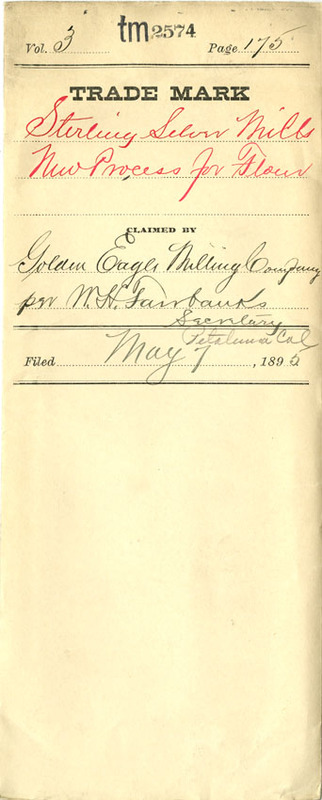 tm 2574
Vol. 3 Page 175
TRADE MARK
Sterling Silver Mills
New Process for Flour
CLAIMED BY
Golden Eagle Milling Company
per W. H. Fairbanks
Secretary
Petaluma Cal
Filed May 7, 1895